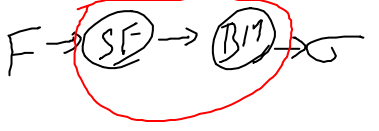 F → SF → BM → σ